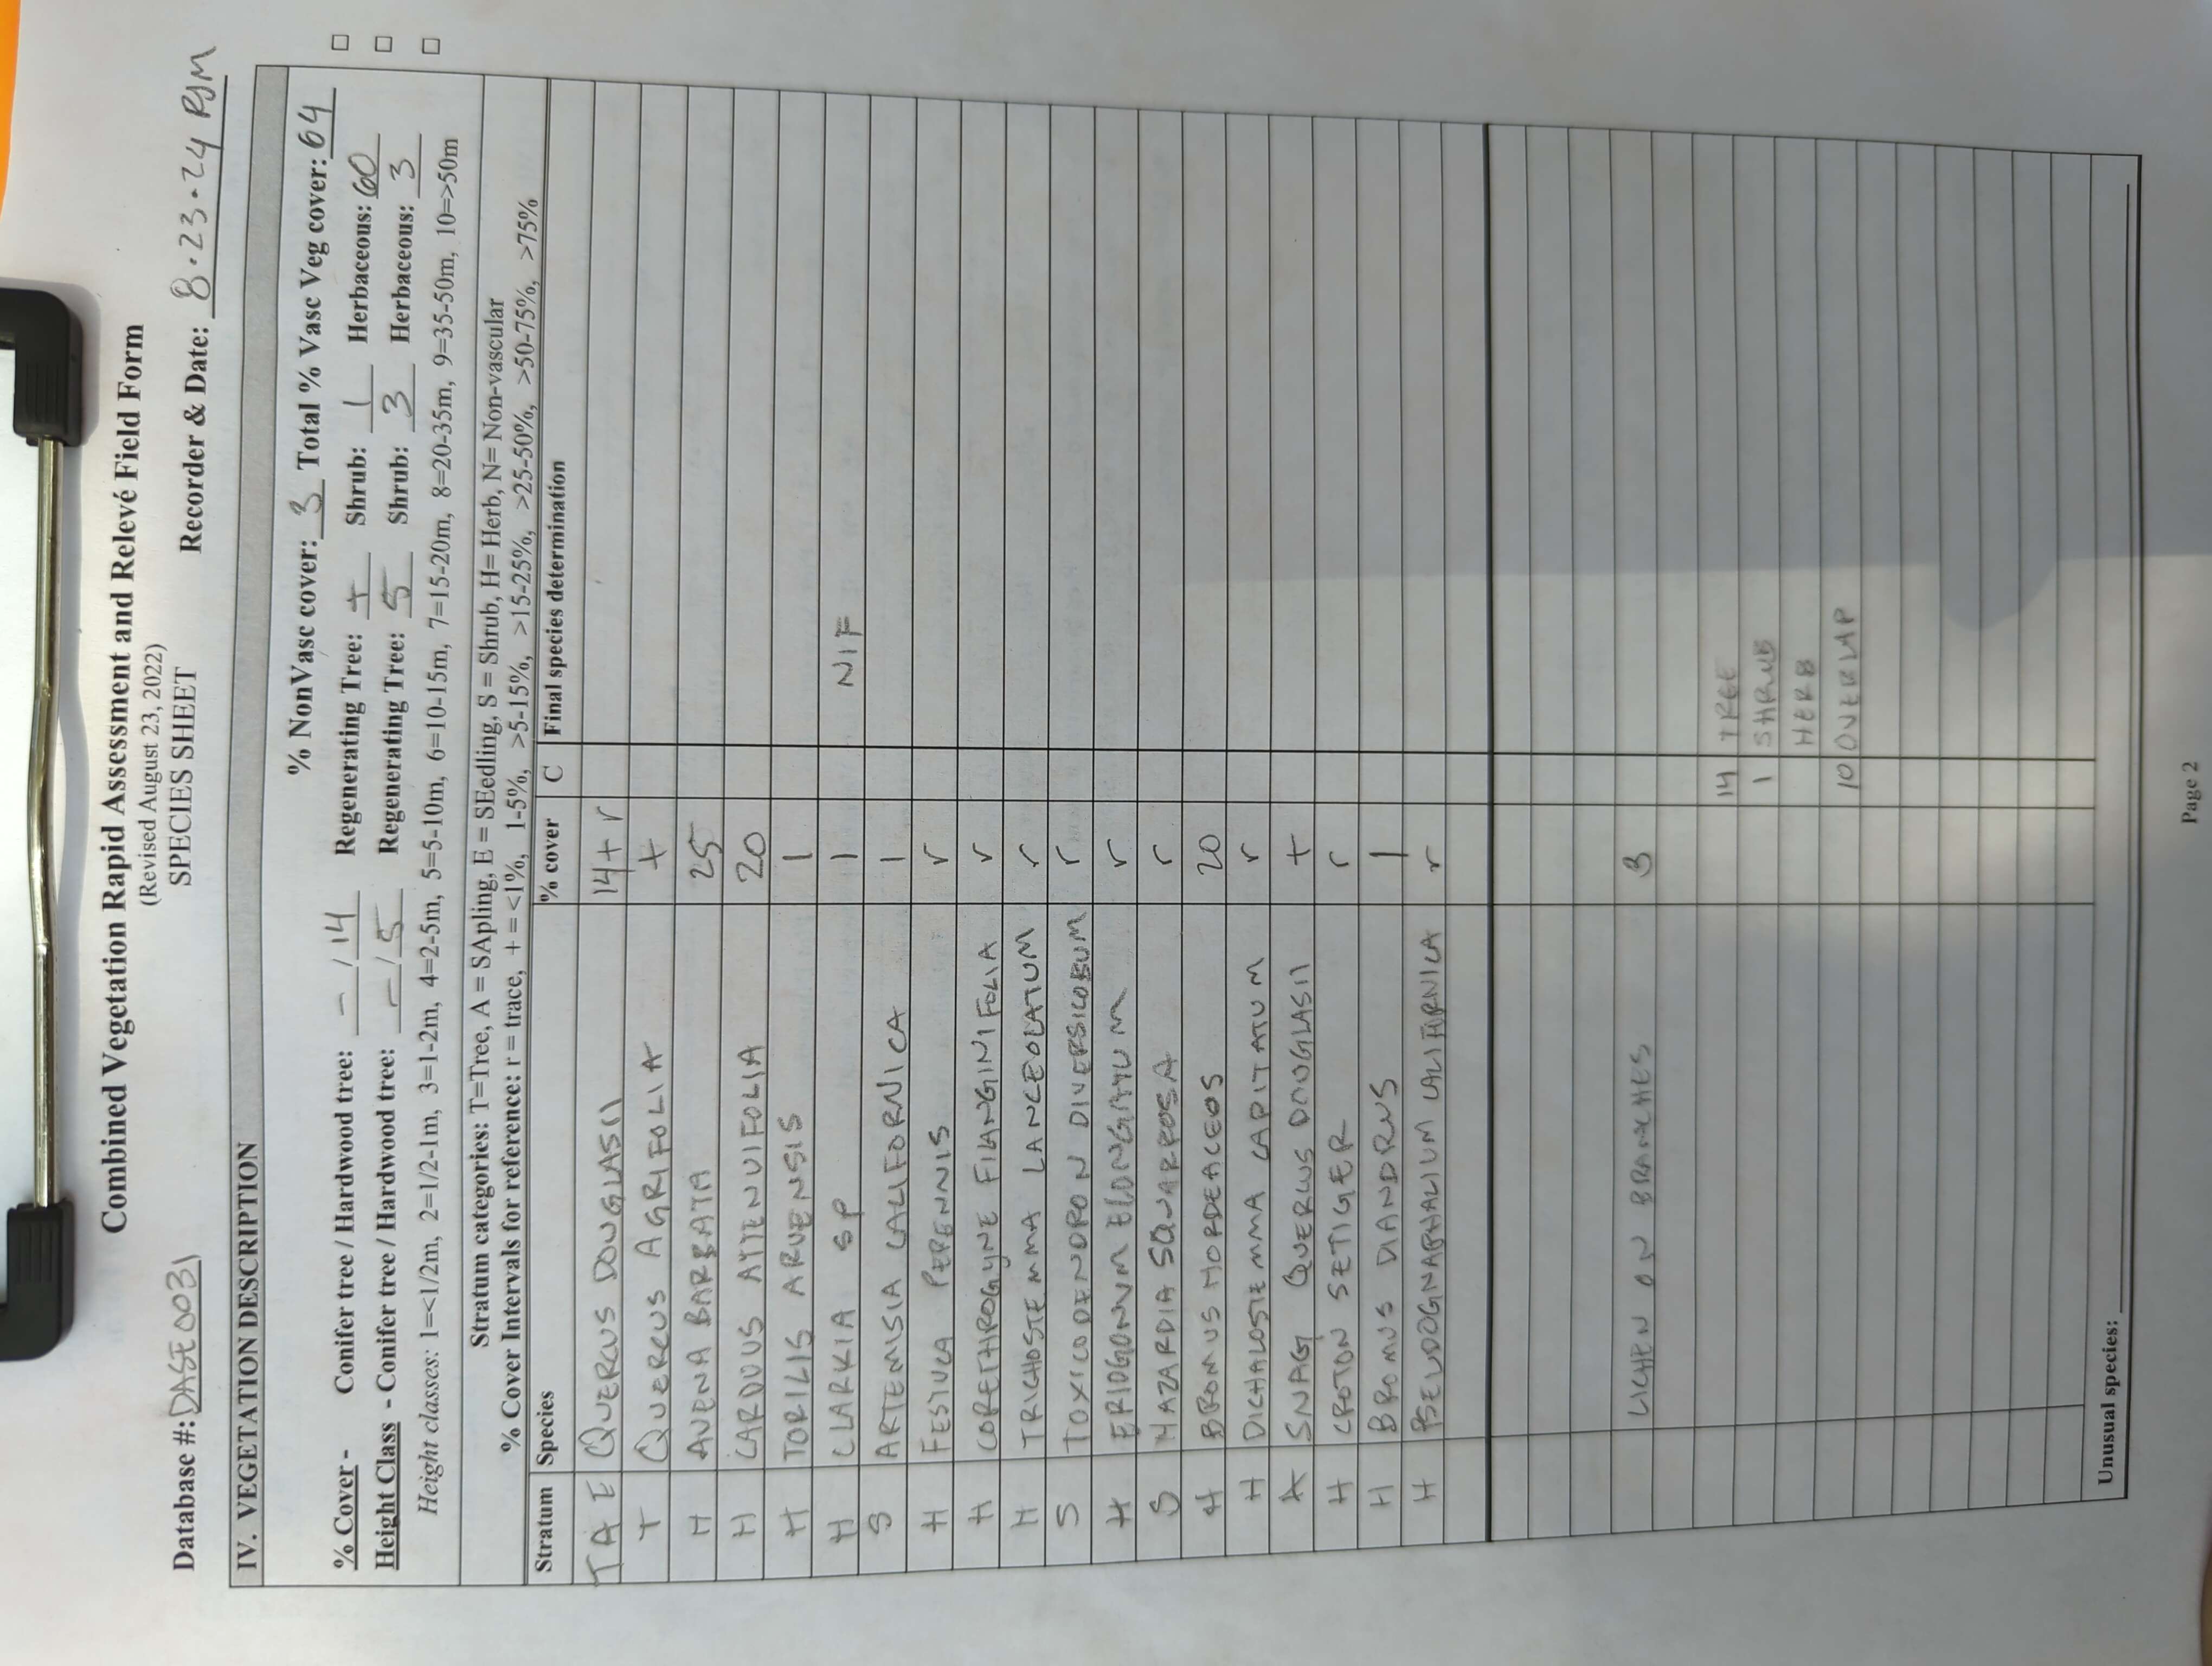 Combined Vegetation Rapid Assessment and Relevé Field Form
(Revised August 23, 2022)
SPECIES SHEET
Database #: DASE0031 Recorder & Date: 8.23.24 RJM
IV. VEGETATION DESCRIPTION
% NonVasc cover: 3 Total % Vasc Veg cover: 64
% Cover - Conifer tree / Hardwood tree: - / 14 Regenerating Tree: + Shrub: 1 Herbaceous: 60
Height Class - Conifer tree / Hardwood tree: - / 5 Regenerating Tree: 5 Shrub: 3 Herbaceous: 3
Height classes: 1=<1/2m, 2=1/2-1m, 3=1-2m, 4=2-5m, 5=5-10m, 6=10-15m, 7=15-20m, 8=20-35m, 9=35-50m, 10=>50m
Stratum categories: T=Tree, A = SApling, E = SEedling, S = Shrub, H= Herb, N= Non-vascular
% Cover Intervals for reference: r = trace, + = <1%, 1-5%, >5-15%, >15-25%, >25-50%, >50-75%, >75%
Stratum Species % cover C Final species determination
T A E QUERCUS DOUGLASII 14 + r
T QUERCUS AGRIFOLIA +
H AVENA BARBATA 25
H CARDUUS ATTENUIFOLIA 20
H TORILIS ARVENSIS 1
H CLARKIA SP 1 NIF
S ARTEMISIA CALIFORNICA 1
H FESTUCA PERENNIS r
H CORETHROGYNE FILANGINIFOLIA r
H TRICHOSTEMMA LANCEOLATUM r
S TOXICODENDRON DIVERSILOBUM r
H ERIOGONUM ELONGATUM r
S HAZARDIA SQUARROSA r
H BROMUS HORDEACEOS 20
H DICHALOSTEMMA CAPITATUM r
A SNAG QUERCUS DOUGLASII +
H CROTON SETIGER r
H BROMUS DIANDRUS 1
H PSEUDOGNAPHALIUM CALIFORNICA r
LICHEN ON BRANCHES 3
14 TREE
1 SHRUB
HERB
10 OVERLAP
Unusual species:
Page 2